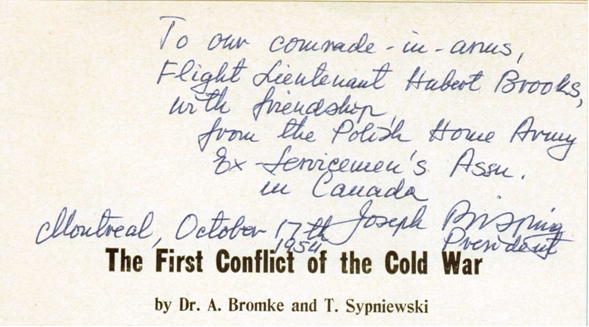 To our comrade-in-arms,
Flight Lieutenant Hubert Brooks,
with friendship,
from the Polish Home Army
Ex-Servicemen's Assn.
in Canada
Montreal, October 17th Joseph
1954 President
The First Conflict of the Cold War
by Dr. A. Bromke and T. Sypniewski